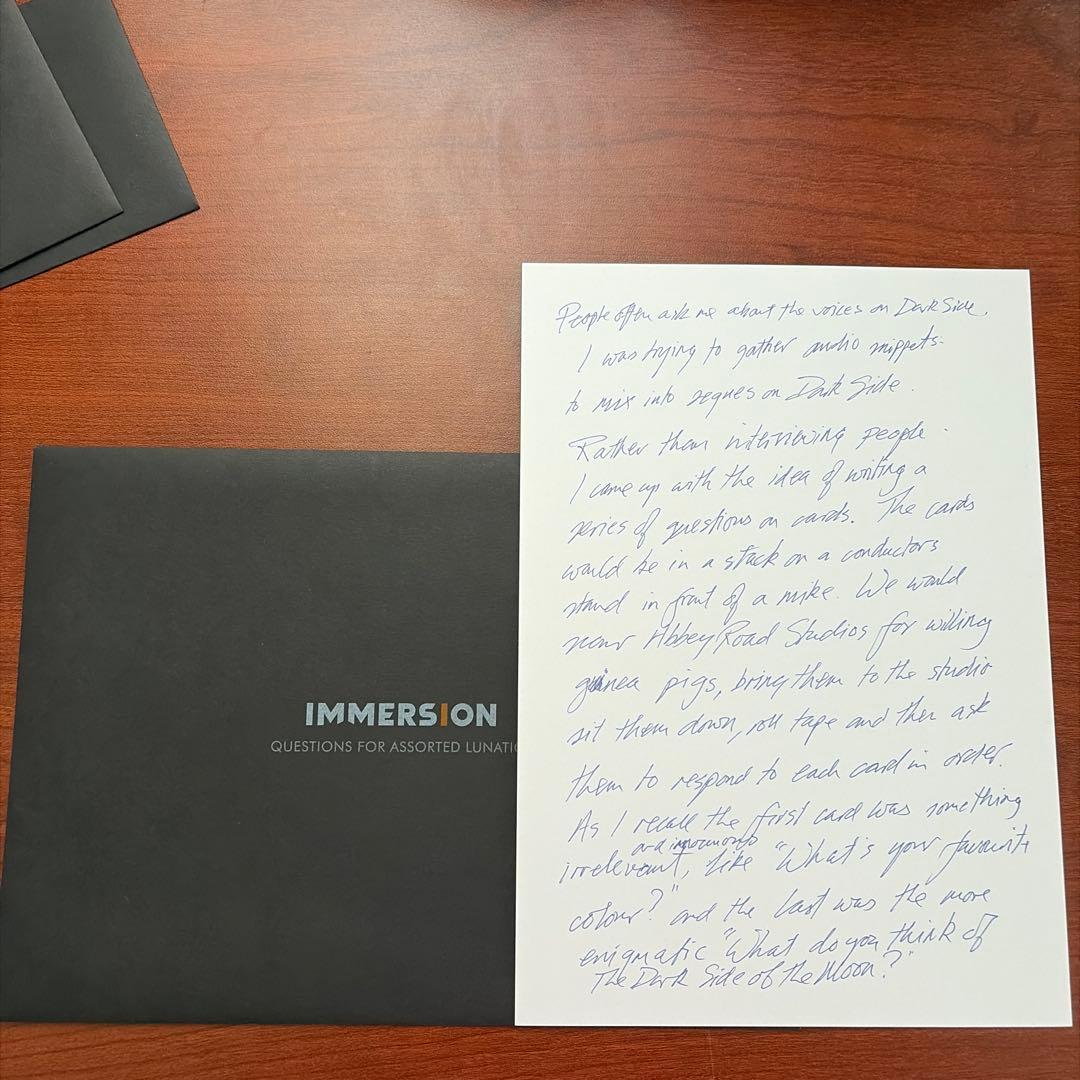 IMMERSION
QUESTIONS FOR ASSORTED LUNATIC
People often ask me about the voices on Dark Side.
I was trying to gather audio snippets
to mix into segues on Dark Side.
Rather than interviewing people.
I came up with the idea of writing a
series of questions on cards. The cards
would be in a stack on a conductors
stand in front of a mike. We would
scour Abbey Road Studios for willing
guinea pigs, bring them to the studio
sit them down, roll tape and then ask
them to respond to each card in order.
As I recall the first card was something
and innocuous
irrelevant, like "What's your favourite
colour?" and the last was the more
enigmatic "What do you think of
The Dark Side of the Moon?"